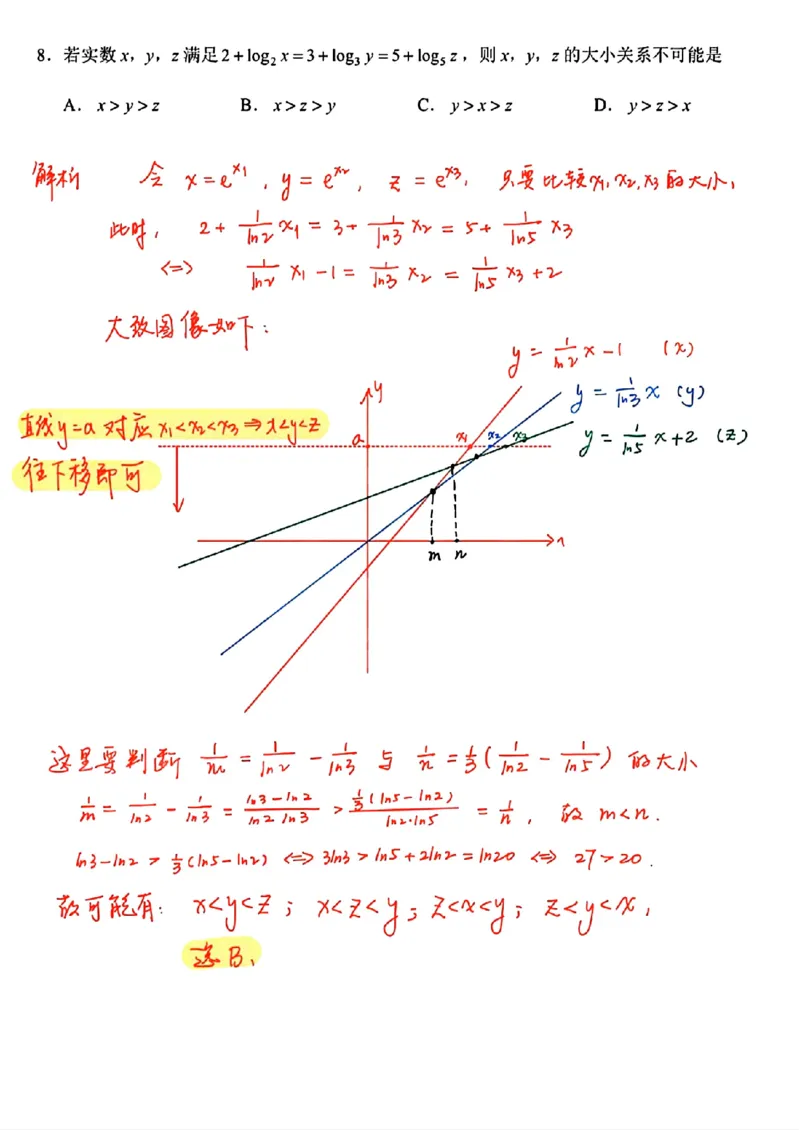 8. 若实数 x，y，z 满足 2+log₂ x=3+log₃ y=5+log₅ z，则 x，y，z 的大小关系不可能是
A. x>y>z B. x>z>y C. y>x>z D. y>z>x
解析 令 x=e^{x₁}, y=e^{x₂}, z=e^{x₃}, 只要比较x₁,x₂,x₃的大小,
此时, 2+\frac{1}{ln2}x₁=3+\frac{1}{ln3}x₂=5+\frac{1}{ln5}x₃
<=> \frac{1}{ln2}x₁-1=\frac{1}{ln3}x₂=\frac{1}{ln5}x₃+2
大致图像如下:
y=\frac{1}{ln2}x-1 (x)
y=\frac{1}{ln3}x (y)
y=\frac{1}{ln5}x+2 (z)
y
直线y=a对应x₁<x₂<x₃⇒x<y<z
a x₁ x₂ x₃
往下移即可
x
m n
这里要判断 \frac{1}{m}=\frac{1}{ln2}-\frac{1}{ln3} 与 \frac{1}{n}=\frac{1}{3}(\frac{1}{ln2}-\frac{1}{ln5}) 的大小
\frac{1}{m}=\frac{1}{ln2}-\frac{1}{ln3}=\frac{ln3-ln2}{ln2 ln3}>\frac{\frac{1}{3}(ln5-ln2)}{ln2·ln5}=\frac{1}{n}, 故 m<n.
ln3-ln2>\frac{1}{3}(ln5-ln2) <=> 3ln3>ln5+2ln2=ln20 <=> 27>20.
故可能有: x<y<z; x<z<y; z<x<y; z<y<x,
选B,